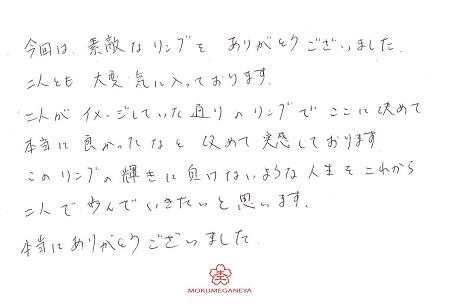 今回は、素敵なリングを ありがとうございました.
二人とも 大変 気に入っております.
二人が イメージしていた通りのリングで ここに決めて
本当に良かったなと 改めて 実感しております
このリングの輝きに負けないような人生を これから
二人で 歩んでいきたいと思います.
本当にありがとうございました.
MOKUMEGANEYA